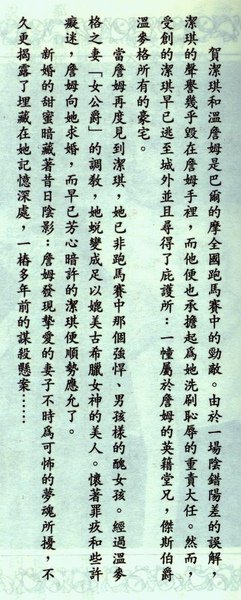 賀潔琪和溫詹姆是巴爾的摩全國跑馬賽中的勁敵。由於一場陰錯陽差的誤解，
潔琪的聲譽幾乎毀在詹姆手裡，而他便也承擔起為她洗刷恥辱的重責大任。然而，
受創的潔琪早已逃至城外並且尋得了庇護所：一幢屬於詹姆的英籍堂兄，傑斯伯爵
溫麥格所有的豪宅。
當詹姆再度見到潔琪，她已非跑馬賽中那個強悍、男孩樣的醜女孩。經過溫麥
格之妻「女公爵」的調教，她蛻變成足以媲美古希臘女神的美人。懷著罪疚和些許
癡迷，詹姆向她求婚，而早已芳心暗許的潔琪便順勢應允了。
新婚的甜蜜暗藏著昔日陰影：詹姆發現摯愛的妻子不時為可怖的夢魂所擾，不
久更揭露了埋藏在她記憶深處，一樁多年前的謀殺懸案……